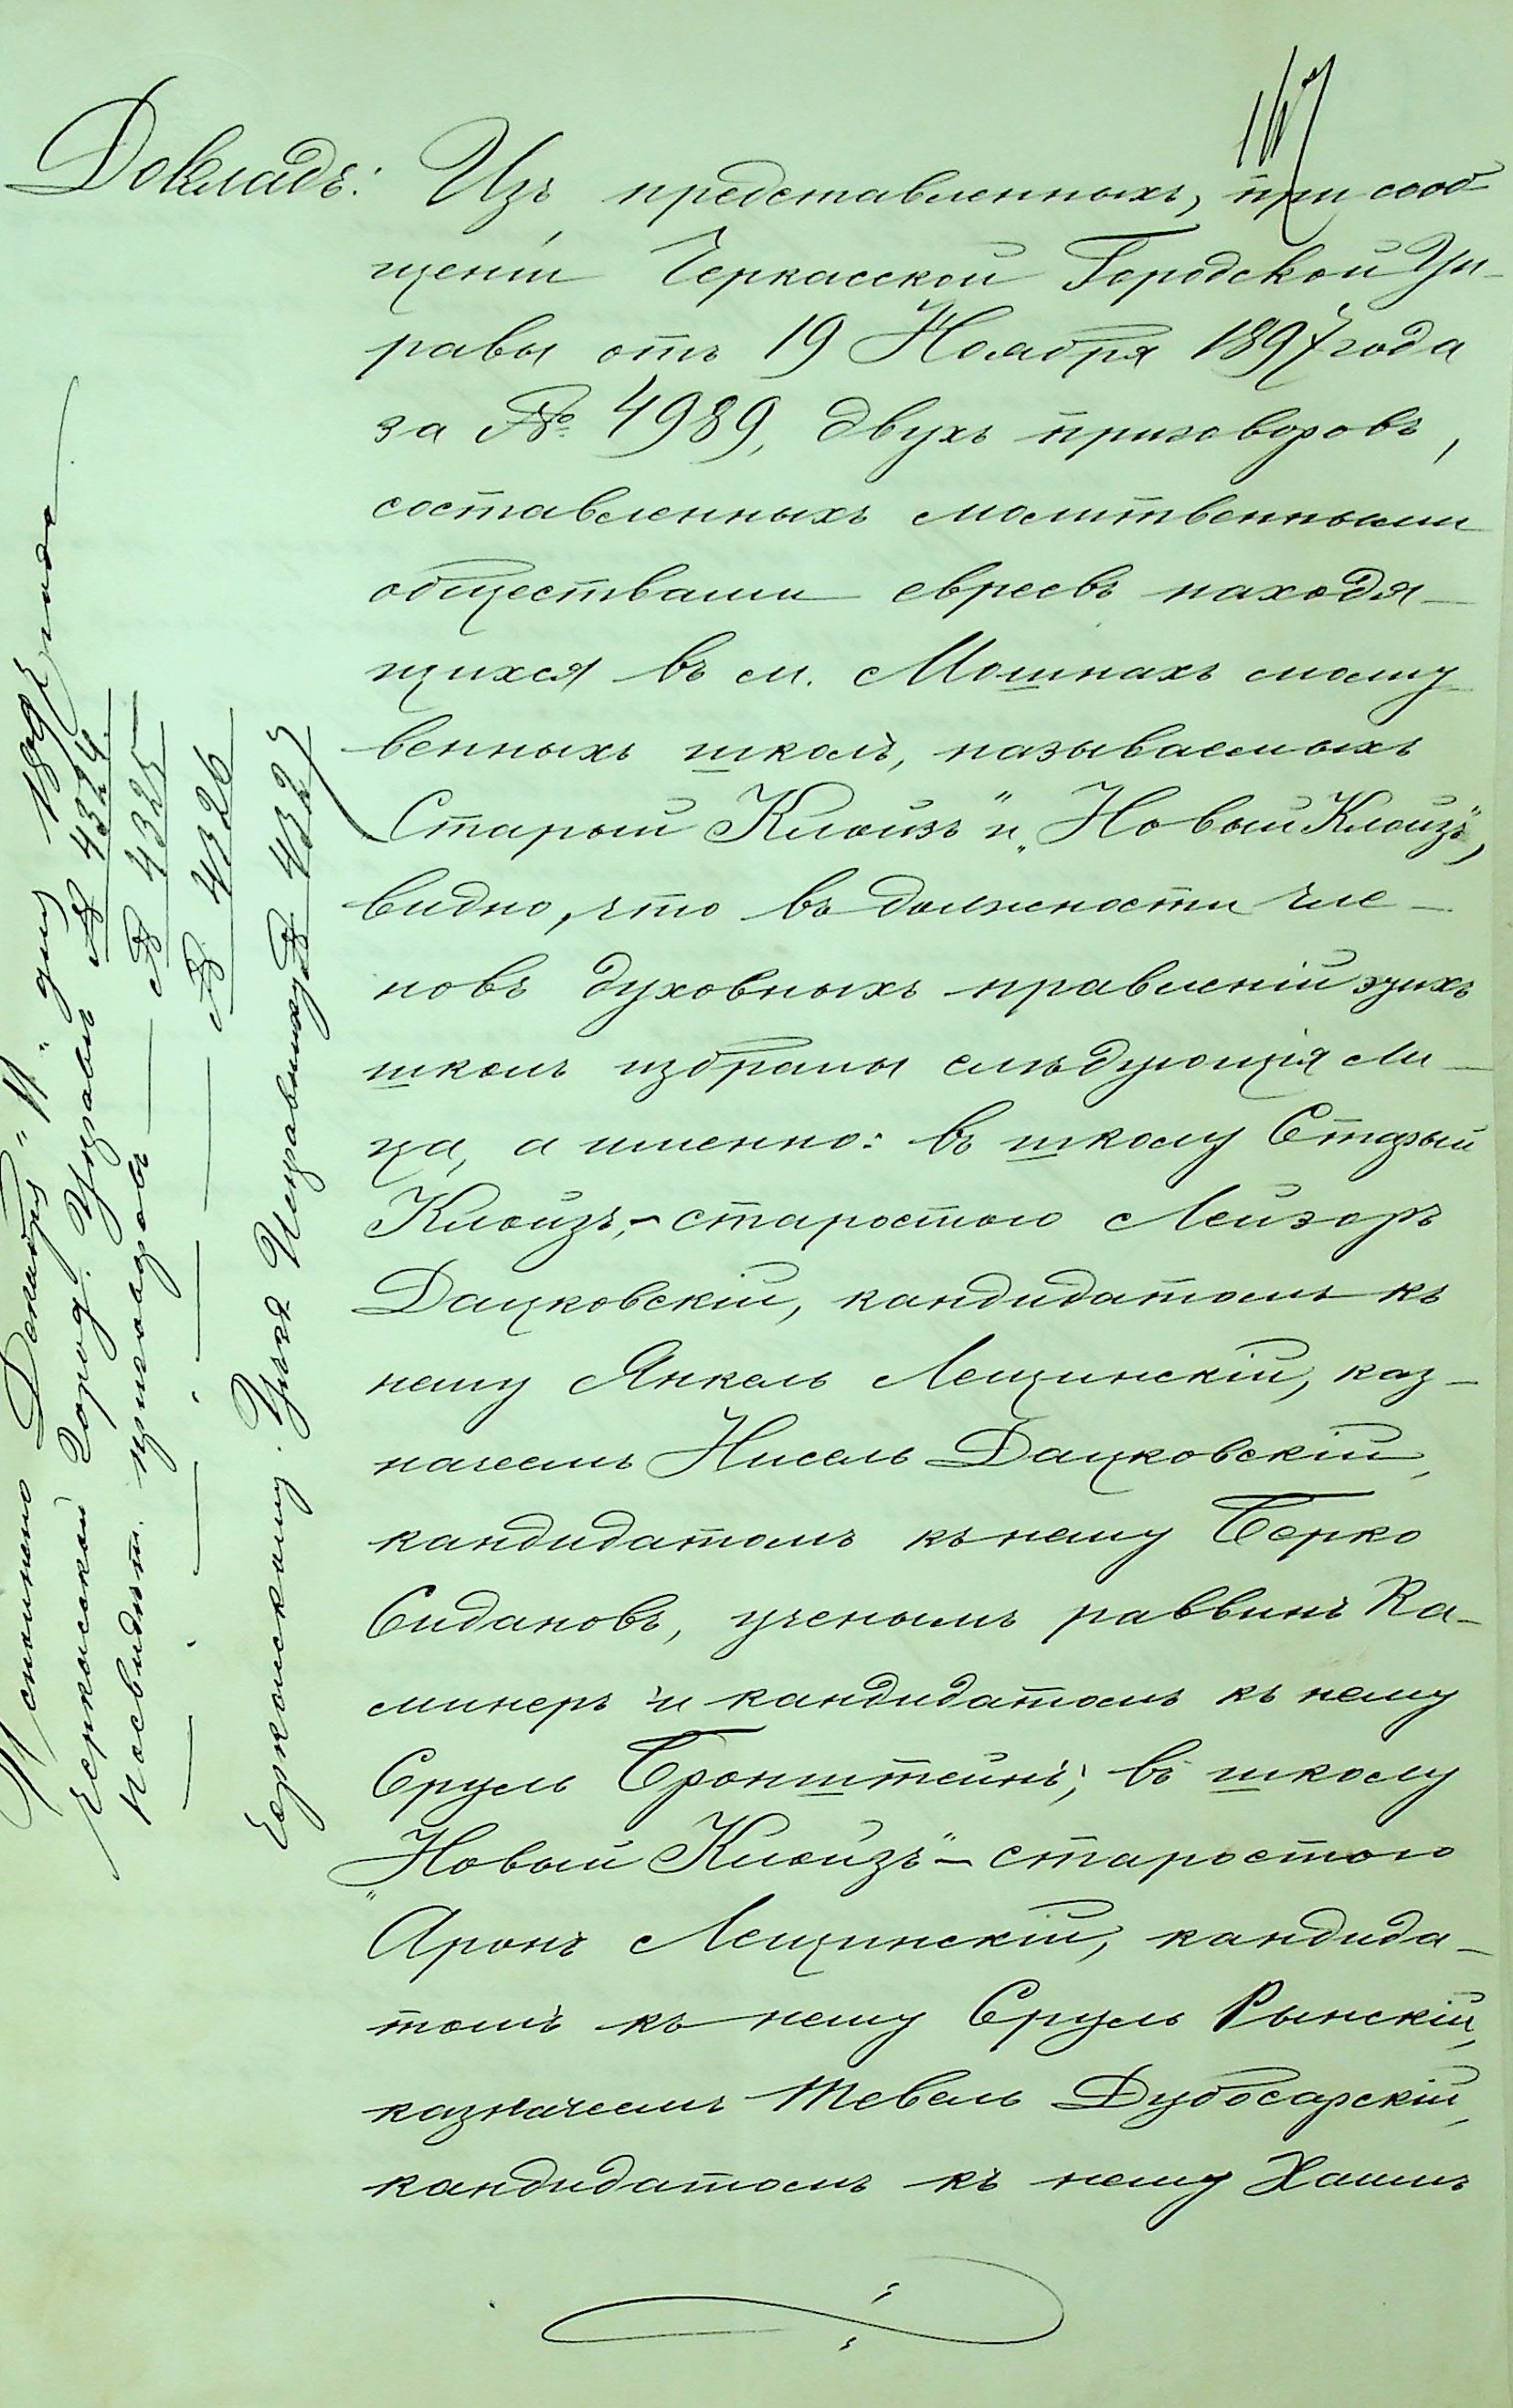 Докладъ: Изъ представленныхъ, при сооб-
щеніи Черкасской Городской Уп-
равы отъ 19 Ноября 1897 года
за № 4989, двухъ приговоровъ,
составленныхъ молитвенными
обществами евреевъ находя-
щихся въ м. Мошнахъ молит-
венныхъ школъ, называемыхъ
Старый Клойзъ" и „Новый Клойзъ",
видно, что въ должности чле-
новъ духовныхъ правленій этихъ
школъ избраны слѣдующія ли-
ца, а именно: въ школу Старый
Клойзъ, - старостою Лейзоръ
Дацковскій, кандидатомъ къ
нему Янкель Лещинскій, каз-
начеемъ Нисель Дацковскій,
кандидатомъ къ нему Берко
Сидановъ, ученымъ раввинъ Ка-
минеръ и кандидатомъ къ нему
Сруль Бронштейнъ; въ школу
„Новый Клойзъ" - старостою
Аронъ Лещинскій, кандида-
томъ къ нему Сруль Рынскій,
казначеемъ Тевель Дубосарскій,
кандидатомъ къ нему Хаимъ
Исполнено Декабря „11" дня 1897 года
Черкасской Город. Управѣ № 4324
Посвидѣт. приговоръ — № 4325
— . — . — № 4326
Черкасскому Уѣзд. Исправнику № 4327